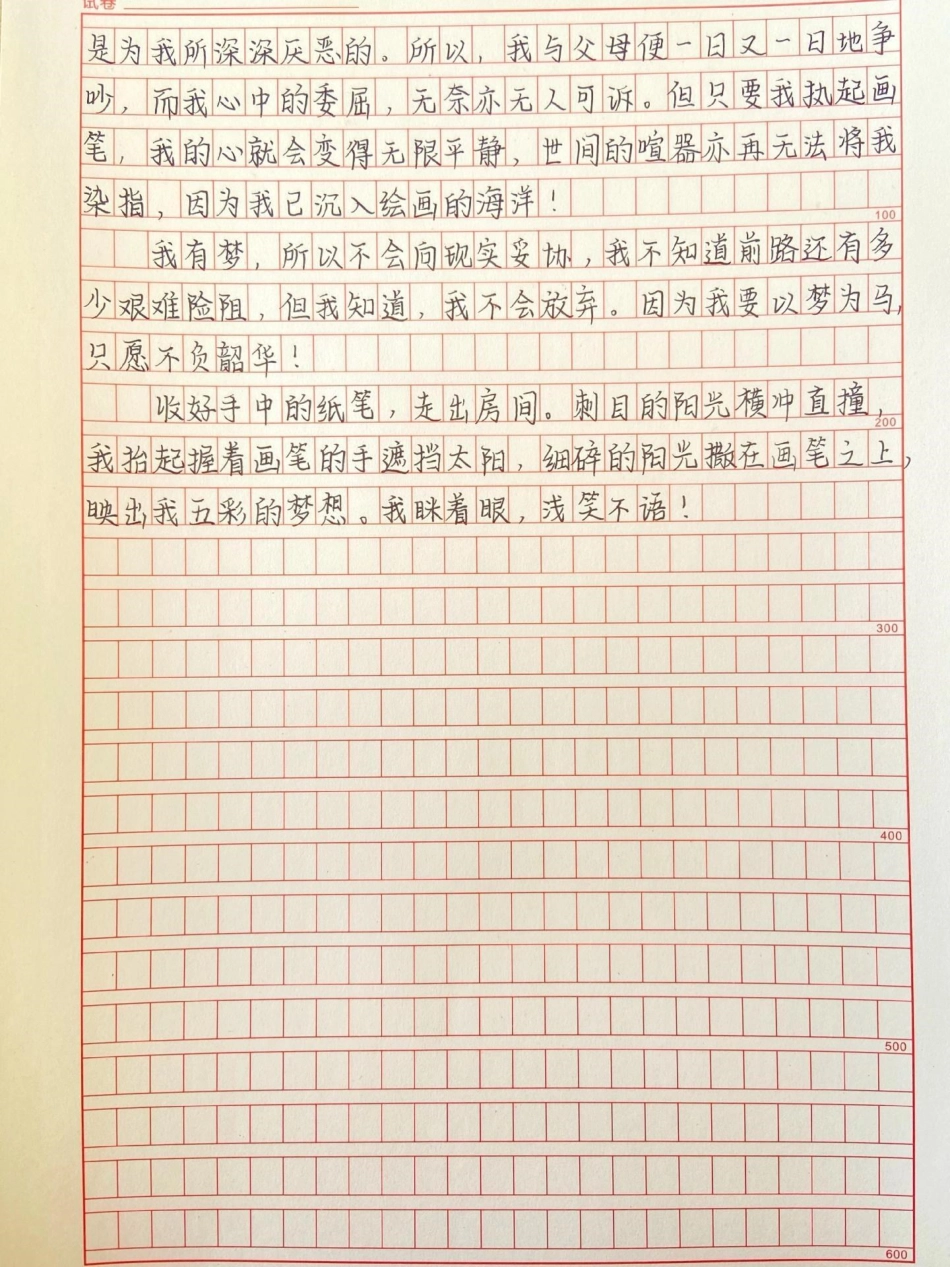 试卷
是为我所深深厌恶的。所以，我与父母便一日又一日地争
吵，而我心中的委屈，无奈亦无人可诉。但只要我执起画
笔，我的心就会变得无限平静，世间的喧器亦再无法将我
染指，因为我已沉入绘画的海洋！
100
我有梦，所以不会向现实妥协，我不知道前路还有多
少艰难险阻，但我知道，我不会放弃。因为我要以梦为马，
只愿不负韶华！
收好手中的纸笔，走出房间。刺目的阳光横冲直撞，
200
我抬起握着画笔的手遮挡太阳，细碎的阳光撒在画笔之上，
映出我五彩的梦想。我眯着眼，浅笑不语！
300
400
500
600